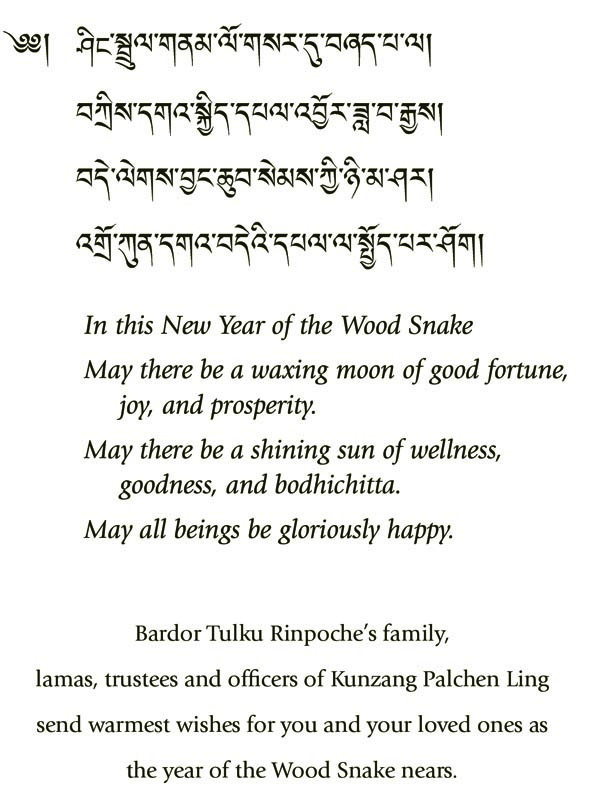 ༄༅། ཤིང་སྦྲུལ་གནམ་ལོ་གསར་དུ་བཞད་པ་ལ།
བཀྲིས་དགའ་སྐྱིད་དཔལ་འབྱོར་ཟླ་བ་རྒྱས།
བདེ་ལེགས་བྱང་ཆུབ་སེམས་ཀྱི་ཉི་མ་ཤར།
འགྲོ་ཀུན་དགའ་བདེའི་དཔལ་ལ་སྤྱོད་པར་ཤོག།
In this New Year of the Wood Snake
May there be a waxing moon of good fortune,
joy, and prosperity.
May there be a shining sun of wellness,
goodness, and bodhichitta.
May all beings be gloriously happy.
Bardor Tulku Rinpoche’s family,
lamas, trustees and officers of Kunzang Palchen Ling
send warmest wishes for you and your loved ones as
the year of the Wood Snake nears.